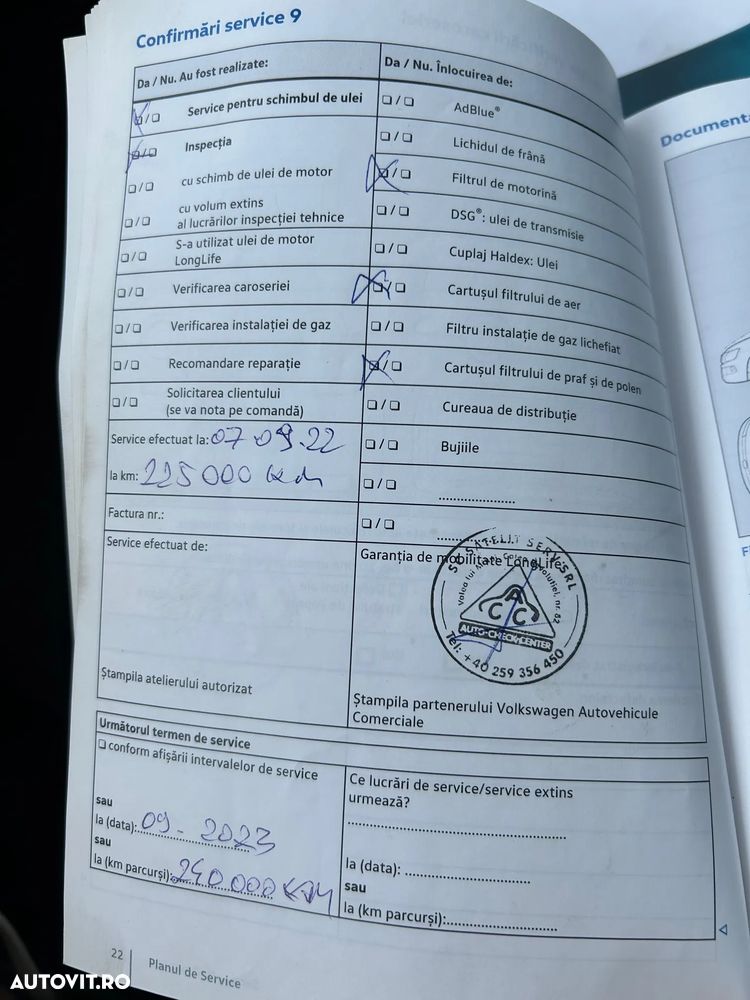 Confirmări service 9
Da / Nu. Au fost realizate:
❏/❏ Service pentru schimbul de ulei
❏/❏ Inspecția
❏/❏ cu schimb de ulei de motor
❏/❏ cu volum extins
al lucrărilor inspecției tehnice
❏/❏ S-a utilizat ulei de motor
LongLife
❏/❏ Verificarea caroseriei
❏/❏ Verificarea instalației de gaz
❏/❏ Recomandare reparație
❏/❏ Solicitarea clientului
(se va nota pe comandă)
Service efectuat la: 07.09.22
la km: 225 000 Km
Factura nr.:
Service efectuat de:
Ștampila atelierului autorizat
Da / Nu. Înlocuirea de:
❏/❏ AdBlue®
❏/❏ Lichidul de frână
❏/❏ Filtrul de motorină
❏/❏ DSG®: ulei de transmisie
❏/❏ Cuplaj Haldex: Ulei
❏/❏ Cartușul filtrului de aer
❏/❏ Filtru instalație de gaz lichefiat
❏/❏ Cartușul filtrului de praf și de polen
❏/❏ Cureaua de distribuție
❏/❏ Bujiile
❏/❏ ....................
❏/❏ ....................
Garanția de mobilitate LongLife
SATELIT SERV SRL
nr. 82
A
C C
AUTO-CHECK-CENTER
Tel: +40 259 356 450
Ștampila partenerului Volkswagen Autovehicule
Comerciale
Următorul termen de service
❏ conform afișării intervalelor de service
sau
la (data): 09 - 2023
sau
la (km parcurși): 240 000 KM
Ce lucrări de service/service extins
urmează?
la (data): ....................
sau
la (km parcurși):....................
22 Planul de Service
Documenta
AUTOVIT.RO